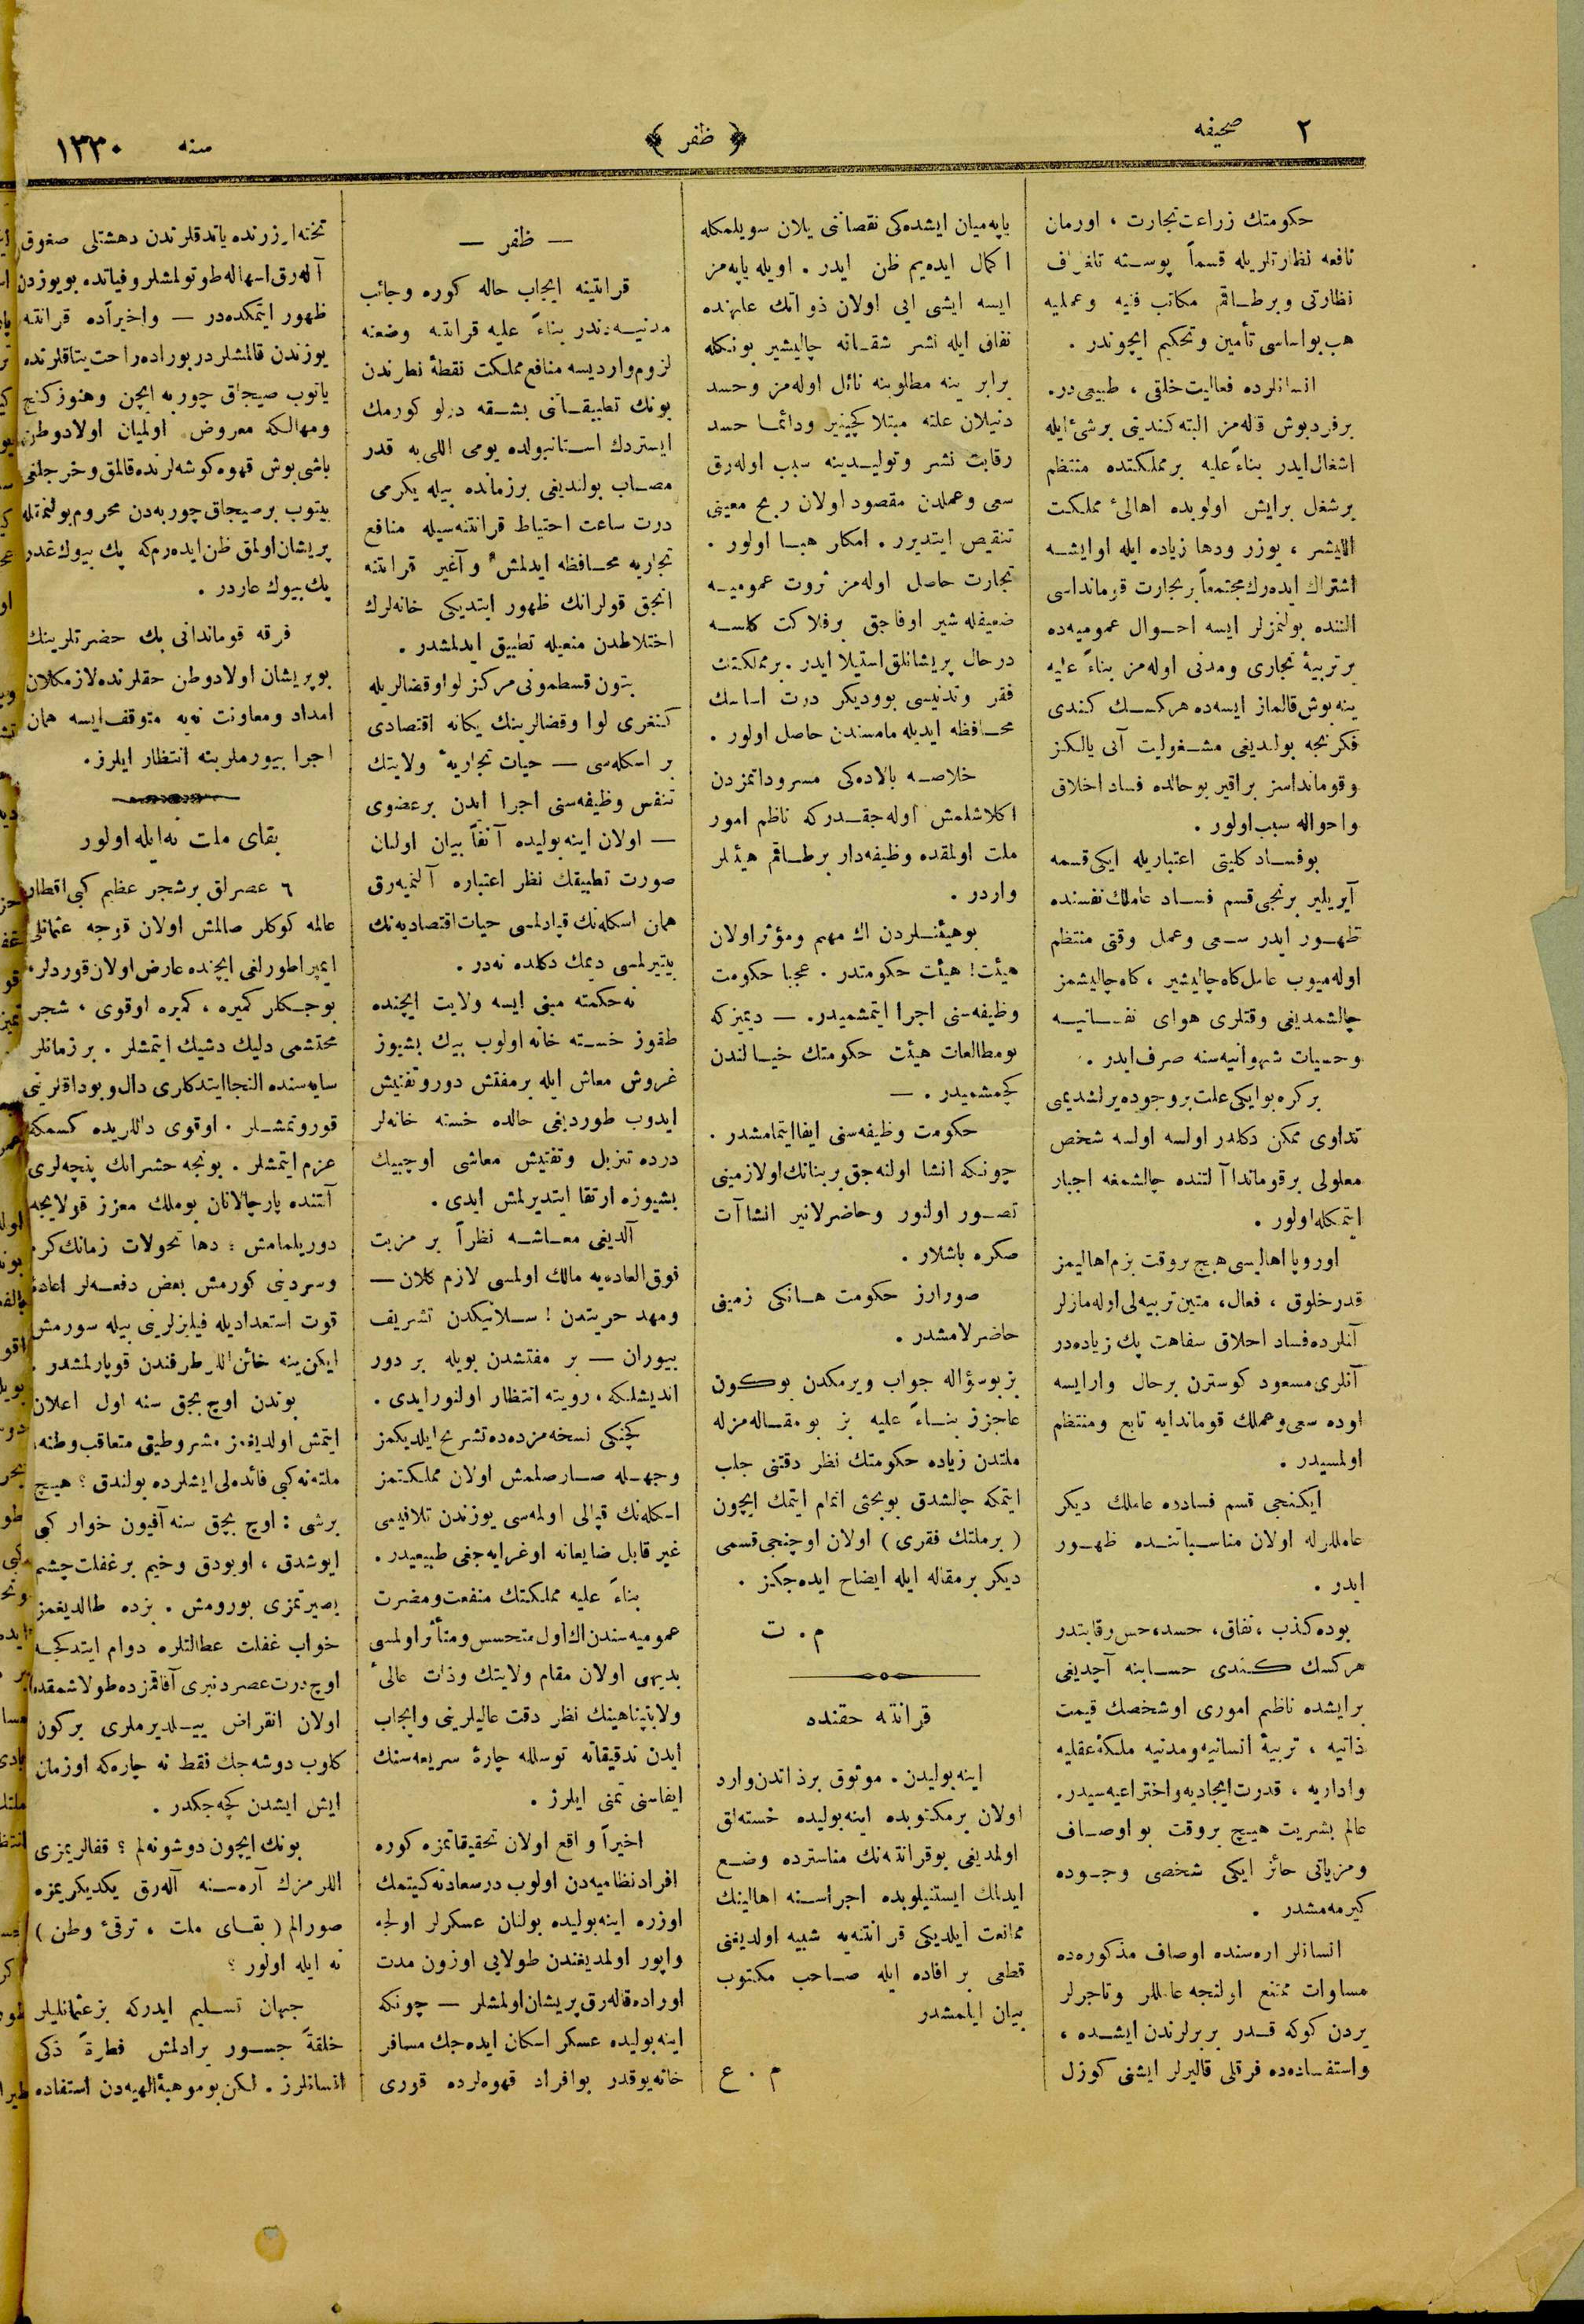 ٢ صحيفه
﴿ ظفر ﴾
سنه ١٣٣٠
حكومتك زراعت تجارت ، اورمان
نافعه نظارتلريله قسماً پوسته تلغراف
نظارتى وبرطاقم مكاتب فنيه وعمليه
هب بواساسى تأمين وتحكيم ايچوندر .
انسانلرده فعاليت خلقى ، طبيعى در.
برفردبوش قاله‌مز البته كنديتى برشئ ايله
اشغال ايدر بناءً عليه بر مملكتده منتظم
برشغل برايش اولوبده اهالئ مملكت
الايشر ، يوزر ودها زياده ايله اوايشه
اشتراك ايده‌رك مجتمعاً بر تجارت قومانداسى
التنده بولنمزلر ايسه احوال عموميه‌ده
بر تربيهٔ تجارى ومدنى اوله‌مز بناءً عليه
ينه بوش قالماز ايسه‌ده هركسك كندى
فكرنجه بولديغى مشغوليت آنى يالكز
وقومانداسز براقير بوحالده فساد اخلاق
واحواله سبب اولور .
بوفساد كليتى اعتباريله ايكى قسمه
آيريلير برنجى قسم فساد عاملك نفسنده
ظهور ايدر سعى وعمل وقتى منتظم
اوله‌ميوب عامل كاه چاليشير ، كاه چاليشمز
چالشمديغى وقتلرى هواى نفسانيه
وحسيات شهوانيه‌سنه صرف ايدر .
بر كره بوايكى علت بروجوده يرلشديمى
تداوى ممكن دكلدر اولسه اولسه شخص
معلولى برقوماندا آلتنده چالشمغه اجبار
ايتمكله اولور .
اوروپا اهاليسى هيچ بروقت بزم اهاليمز
قدر خلوق ، فعال، متين تربيه‌لى اوله‌مازلر
آنلرده فساد اخلاق سفاهت پك زياده‌در
آنلرى مسعود كوسترن برحال وارايسه
اوده سعى وعملك قوماندايه تابع ومنتظم
اولمسيدر .
ايكنجى قسم فسادده عاملك ديكر
عامللرله اولان مناسباتنده ظهور
ايدر .
بوده كذب ، نفاق، حسد، حس رقابتدر
هركسك كندى حسابنه آچديغى
برايشده ناظم امورى اوشخصك قيمت
ذاتيه ، تربيهٔ انسانيه ومدنيه ملكهٔ عقليه
واداريه ، قدرت ايجاديه واختراعيه‌سيدر.
عالم بشريت هيچ بروقت بو اوصاف
ومزياتى حائز ايكى شخصى وجوده
كيرمه‌مشدر .
انسانلر اره‌سنده اوصاف مذكوره‌ده
مساوات ممتنع اولنجه عامللر وتاجرلر
بردن كوكه قدر بربرلرندن ايشده ،
واستفاده‌ده فرقلى قاليرلر ايشنى كوزل
ياپه‌ميان ايشده‌كى نقصاننى يلان سويلمكله
اكمال ايده‌يم ظن ايدر . اويله ياپه‌مز
ايسه ايشى ايى اولان ذواتك عليهنده
نفاق ايله نشر شقاقه چاليشير بونكله
برابر ينه مطلوبنه نائل اوله‌مز وحسد
دنيلان علته مبتلا كچينير ودائما حسد
رقابت نشر وتوليدينه سبب اوله‌رق
سعى وعملدن مقصود اولان ربح معينى
تنقيص ايتديرر . امكار هبا اولور .
تجارت حاصل اوله‌مز ثروت عموميه
ضعيفله‌شير اوفاجق برفلاكت كلسه
درحال پريشانلق استيلا ايدر . بر مملكتك
فقر وتدنيسى بووديكر درت اساسك
محافظه ايديله‌مامسندن حاصل اولور .
خلاصه بالاده‌كى مسروداتمزدن
اكلاشلمش اوله‌جقدركه ناظم امور
ملت اولمقده وظيفه‌دار برطاقم هيئلر
واردر .
بوهيئتلردن اك مهم ومؤثر اولان
هيئت! هيئت حكومتدر . عجبا حكومت
وظيفه‌سنى اجرا ايتمشميدر. — ديميزكه
بومطالعات هيئت حكومتك خيالندن
كچمشميدر . —
حكومت وظيفه‌سنى ايفا ايتمامشدر .
چونكه انشا اولنه‌جق بر بنانك اولازمينى
تصور اولنور وحاضرلانير انشاآت
صكره باشلار .
صورارز حكومت هانكى زمينى
حاضرلامشدر .
بز بوسؤاله جواب ويرمكدن بوكون
عاجزز بناءً عليه بز بو مقاله‌مزله
ملتدن زياده حكومتك نظر دقتنى جلب
ايتمكه چالشدق بو بحثى اتمام ايتمك ايچون
( بر ملتك فقرى ) اولان اوچنجى قسمى
ديكر بر مقاله ايله ايضاح ايده‌جكز .
م . ت
قرانتنه حقنده
اينه‌بوليدن. موثوق برذاتدن وارد
اولان برمكتوبده اينه‌بوليده خسته‌لق
اولمديغى بوقرانتنه‌نك مناسترده وضع
ايدلمك ايستنيلوبده اجراسنه اهالينك
ممانعت ايلديكى قرانتنه‌يه شبيه اولديغنى
قطعى بر افاده ايله صاحب مكتوب
بيان ايلمشدر
م . ع
— ظفر —
قرانتينه ايجاب حاله كوره وجائب
مدنيه‌دندر بناءً عليه قرانتنه وضعنه
لزوم وارديسه منافع مملكت نقطهٔ نظرندن
بونك تطبيقاتنى بشقه درلو كورمك
ايستردك استانبولده يومى اللى‌يه قدر
مصاب بولنديغى برزمانده بيله يكرمى
درت ساعت احتياط قرانتنه‌سيله منافع
تجاريه محافظه ايدلمش و آغير قرانتنه
انجق قولرانك ظهور ايتديكى خانه‌لرك
اختلاطدن منعيله تطبيق ايدلمشدر .
بتون قسطمونى مركز لواوقضالريله
كنغرى لوا وقضالرينك يكانه اقتصادى
بر اسكله‌سى — حيات تجاريهٔ ولايتك
تنفس وظيفه‌سنى اجرا ايدن برعضوى
— اولان اينه‌بوليده آنفاً بيان اولنان
صورت تطبيقك نظر اعتباره آلنميه‌رق
همان اسكله‌نك قپادلمسى حيات اقتصاديه‌نك
بيتيرلمسى ديمك دكلده نه‌در .
نه حكمته مبنى ايسه ولايت ايچنده
طقوز خسته خانه اولوب بيك بشيوز
غروش معاش ايله برمفتش دوروتفتيش
ايدوب طورديغى حالده خسته خانه‌لر
درده تنزيل وتفتيش معاشى اوچبيك
بشيوزه ارتقا ايتديرلمش ايدى .
آلديغى معاشه نظراً بر مزيت
فوق‌العاده‌يه مالك اولمسى لازم كلان —
ومهد حريتدن ! سلانيكدن تشريف
بيوران — بر مفتشدن بويله بر دور
انديشلكه . رويته انتظار اولنورايدى .
كچنكى نسخه‌مزده‌ده تشريح ايلديكمز
وجهله صارصلمش اولان مملكتمز
اسكله‌نك قپالى اولمه‌سى يوزندن تلافيسى
غير قابل ضايعاته اوغرايه‌جغى طبيعيدر .
بناءً عليه مملكتك منفعت ومضرت
عموميه‌سندن اك اول متحسس ومتأثر اولمسى
بديهى اولان مقام ولايتك وذات عالئ
ولايتپناهينك نظر دقت عاليلرينى وايجاب
ايدن تدقيقاته توسلله چارهٔ سريعه‌سنك
ايفاسنى تمنى ايلرز .
اخيراً واقع اولان تحقيقاتمزه كوره
افراد نظاميه‌دن اولوب درسعادته كيتمك
اوزره اينه‌بوليده بولنان عسكرلر اولجه
واپور اولمديغندن طولايى اوزون مدت
اوراده قاله‌رق پريشان اولمشلر — چونكه
اينه‌بوليده عسكر اسكان ايده‌جك مسافر
خانه يوقدر بوافراد قهوه‌لرده قورى
تخته‌لر زرنده ياتدقلرندن دهشتلى صغوق
آله‌رق اسهاله طوتولمشلر وفياتده بويوزدن
ظهور ايتمكده‌در — واخيراًده قرانتنه
يوزندن قالمشلردر بوراده راحت يتاقلرنده
ياتوب صيجاق چوربه ايچن وهنوز كنج
ومهالكه معروض اولميان اولادوطن
باشى بوش قهوه كوشه‌لرنده قالمق وخرجلغى
بيتوب برصيجاق چوربه‌دن محروم بولنمقله
پريشان اولمق ظن ايده‌رم‌كه پك بيوك غدر
پك بيوك عاردر .
فرقه قوماندانى بك حضرتلرينك
بوپريشان اولادوطن حقلرنده لازمكلان
امداد ومعاونت نه‌يه متوقف ايسه همان
اجرا بيورملرينه انتظار ايلرز.
بقاى ملت نه‌ايله اولور
٦ عصرلق برشجر عظيم كبى اقطار
عالمه كوكلر صالمش اولان قوجه عثمانلى
ايمپراطورلغى ايچنده عارض اولان قوردلر،
بوجكلر كميره ، كميره اوقوى ، شجر
محتشمى دليك دشيك ايتمشلر . بر زمانلر
سايه‌سنده التجا ايتدكلرى دال وبوداقلرينى
قوروتمشلر . اوقوى داللريده كسمكه
عزم ايتمشلر . بونجه حشراتك پنچه‌لرى
آلتنده پارچالانان بوملك معزز قولايجه
دوريلمامش ؛ دها تحولات زمانك كرم
وسردينى كورمش بعض دفعه‌لر اعادهٔ
قوت استعداديله فيليزلرينى بيله سورمش
ايكن ينه خائن اللر طرفندن قوپارلمشدر .
بوندن اوچ بچق سنه اول اعلان
ايتمش اولديغمز مشروطيتى متعاقب وطنه،
ملته نه كبى فائده‌لى ايشلرده بولندق ؟ هيچ
برشى : اوچ بچق سنه آفيون خوار كبى
ايوشدق ، اويودق وخيم بر غفلت چشم
بصيرتمزى بورومش . بزده طالديغمز
خواب غفلت عطالتلره دوام ايتدكجه
اوچ درت عصردنبرى آفاقمزده طولاشمقده
اولان انقراض ييلديرملرى بركون
كلوب دوشه‌جك فقط نه چاره‌كه اوزمان
ايش ايشدن كچه‌جكدر .
بونك ايچون دوشونه‌لم ؟ قفالريمزى
اللرمزك آره‌سنه آله‌رق يكديكريمزه
صورالم ( بقاى ملت ، ترقئ وطن )
نه ايله اولور ؟
جهان تسليم ايدركه بزعثمانليلر
خلقةً جسور برادلمش فطرةً ذكى
انسانلرز . لكن بوموهبهٔ الهيه‌دن استفاده